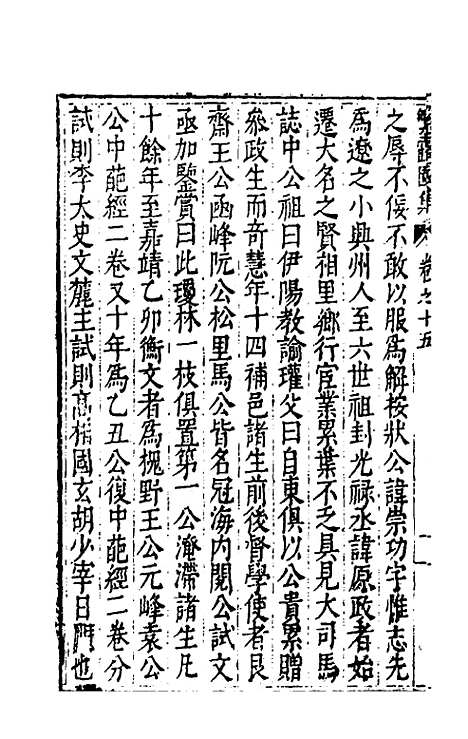 卷之十五
之辱不佞不敢以服爲解按狀公諱崇功字惟志先
爲遼之小興州人至六世祖封光祿丞諱原政者始
遷大名之賢相里鄉行宦業累葉不乏具見大司馬
誌中公祖曰伊陽教諭瓘父曰自東俱以公貴累贈
叅政生而奇慧年十四補邑諸生前後督學使者艮
齋王公函峰阮公松里馬公皆名冠海內閱公試文
亟加鑒賞曰此瓊林一枝俱置第一公淹滯諸生凡
十餘年至嘉靖乙卯衡文者爲槐野王公元峰袁公
公中葩經二卷又十年爲乙丑公復中葩經二卷分
試則李太史文麓主試則高相國玄胡少宰日門也